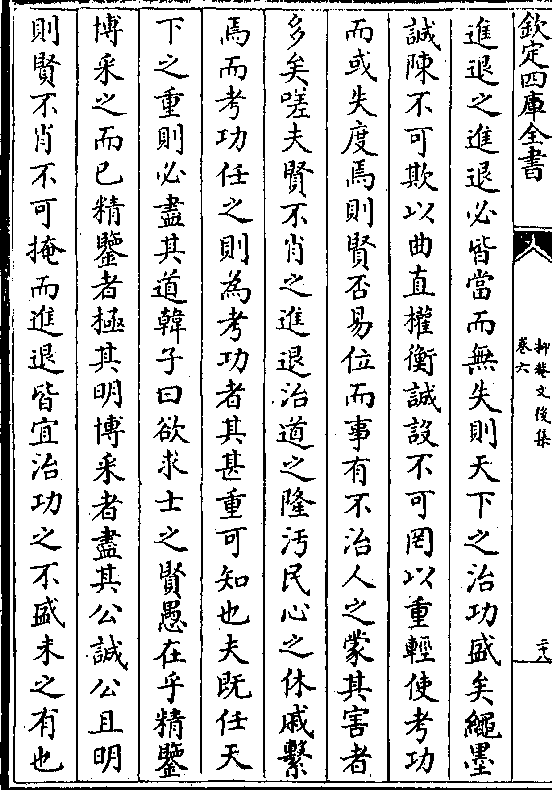 欽定四庫全書
抑菴文後集
卷六
二十八
進退之進退必皆當而無失則天下之治功盛矣繩墨
誠陳不可欺以曲直權衡誠設不可罔以重輕使考功
而或失度焉則賢否易位而事有不治人之蒙其害者
多矣嗟夫賢不肖之進退治道之隆汚民心之休戚繫
焉而考功任之則為考功者其甚重可知也夫既任天
下之重則必盡其道韓子曰欲求士之賢愚在乎精鑒
博采之而已精鑒者極其明博采者盡其公誠公且明
則賢不肖不可掩而進退皆宜治功之不盛未之有也